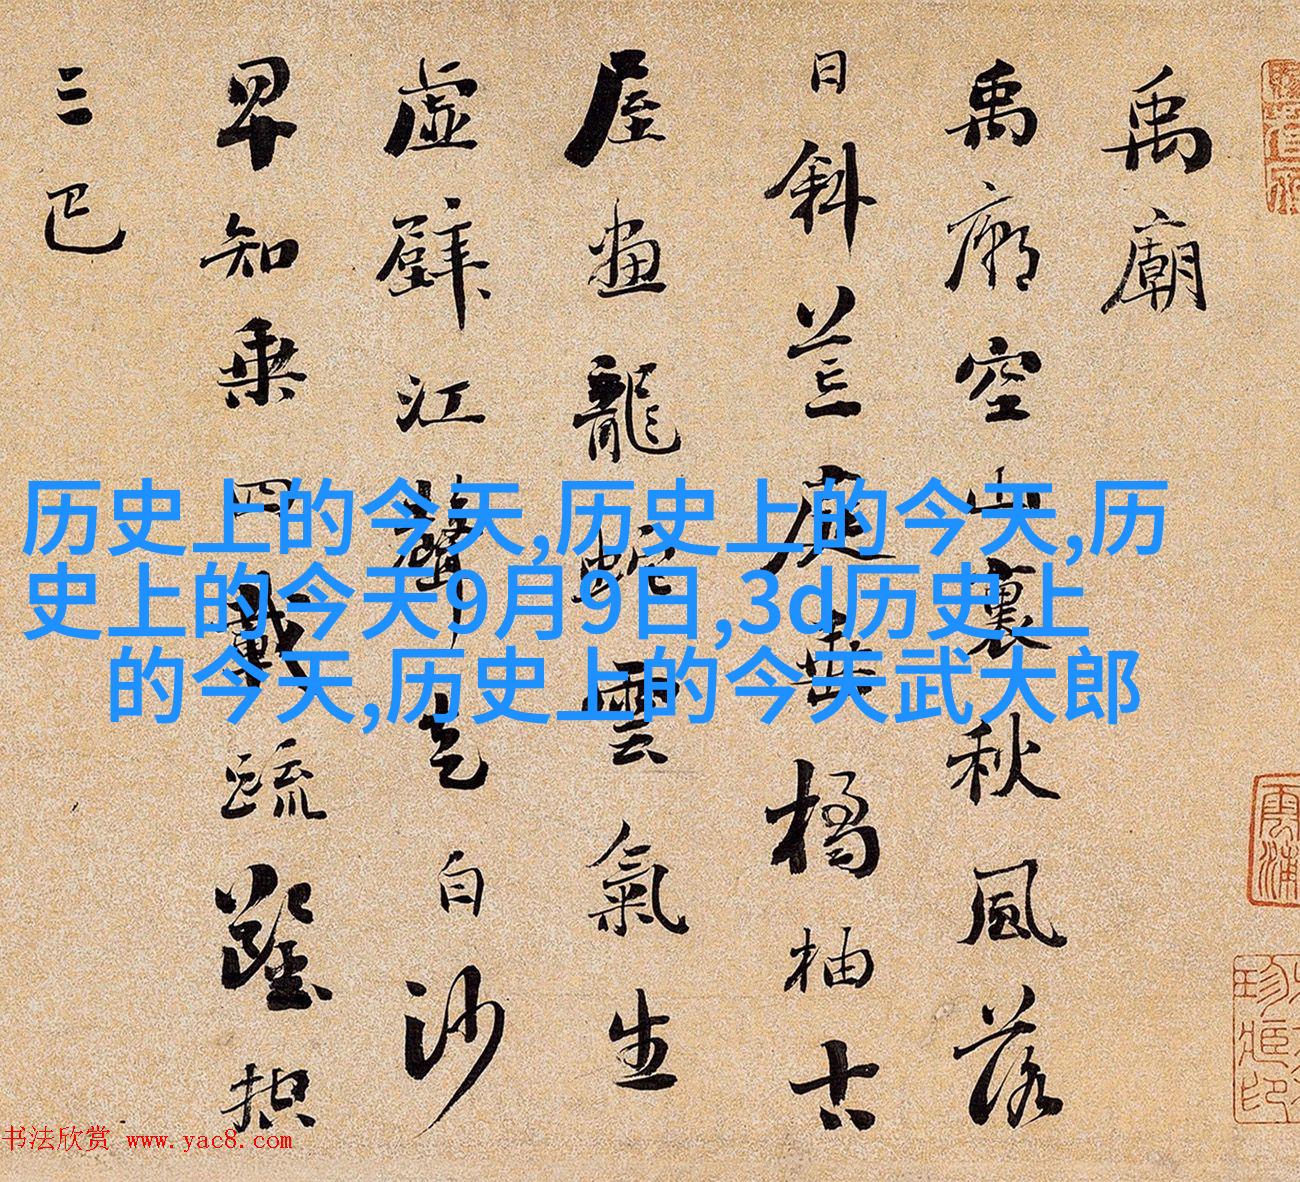 禹廟
禹廟空山裏秋風落
日斜荒庭垂橘柚古
屋畫龍蛇雲氣生
虚壁江聲走白沙
早知乘四載疏鑿控
三巴
历史上的今天,历史上的今天,历
史上的今天9月9日,3d历史上
的今天,历史上的今天武大郎
书法欣赏 www.yac8.com